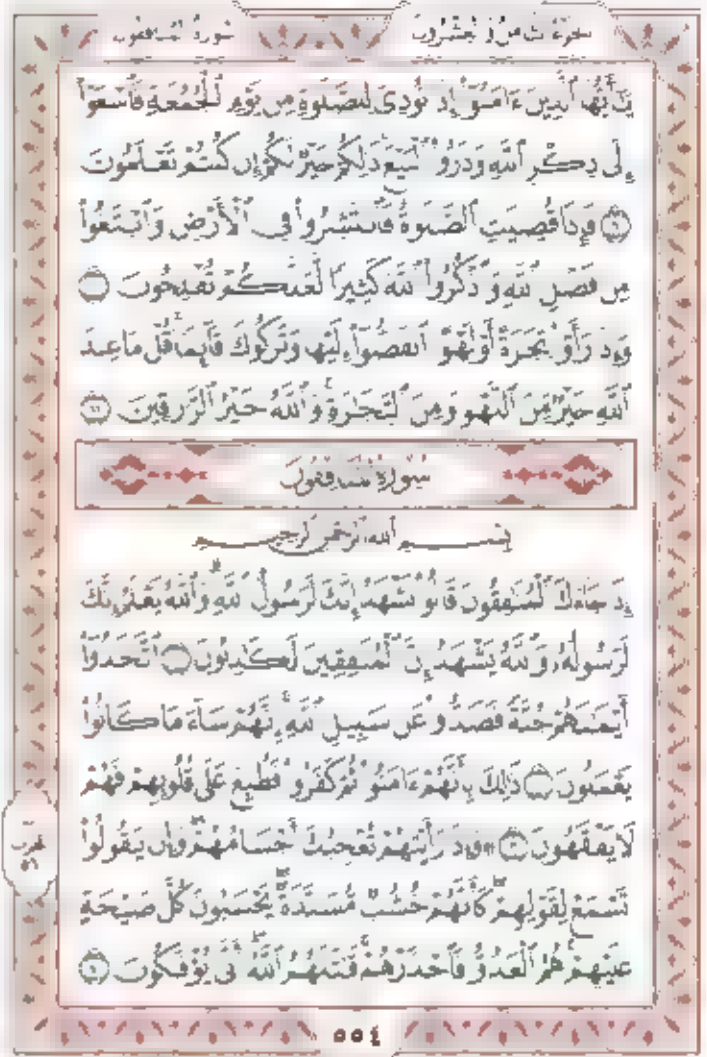 سورة المنافقون الجزء الثامن والعشرون
يَٰٓأَيُّهَا ٱلَّذِينَ ءَامَنُوٓاْ إِذَا نُودِيَ لِلصَّلَوٰةِ مِن يَوْمِ ٱلْجُمُعَةِ فَٱسْعَوْاْ
إِلَىٰ ذِكْرِ ٱللَّهِ وَذَرُواْ ٱلْبَيْعَ ذَٰلِكُمْ خَيْرٌ لَّكُمْ إِن كُنتُمْ تَعْلَمُونَ
٩ فَإِذَا قُضِيَتِ ٱلصَّلَوٰةُ فَٱنتَشِرُواْ فِي ٱلْأَرْضِ وَٱبْتَغُواْ
مِن فَضْلِ ٱللَّهِ وَٱذْكُرُواْ ٱللَّهَ كَثِيرًا لَّعَلَّكُمْ تُفْلِحُونَ ١٠
وَإِذَا رَأَوْاْ تِجَٰرَةً أَوْ لَهْوًا ٱنفَضُّوٓاْ إِلَيْهَا وَتَرَكُوكَ قَآئِمًا قُلْ مَا عِندَ
ٱللَّهِ خَيْرٌ مِّنَ ٱللَّهْوِ وَمِنَ ٱلتِّجَٰرَةِ وَٱللَّهُ خَيْرُ ٱلرَّٰزِقِينَ ١١
سُورَةُ المُنَافِقُونَ
بِسْمِ ٱللَّهِ ٱلرَّحْمَٰنِ ٱلرَّحِيمِ
إِذَا جَآءَكَ ٱلْمُنَٰفِقُونَ قَالُواْ نَشْهَدُ إِنَّكَ لَرَسُولُ ٱللَّهِ وَٱللَّهُ يَعْلَمُ إِنَّكَ
لَرَسُولُهُۥ وَٱللَّهُ يَشْهَدُ إِنَّ ٱلْمُنَٰفِقِينَ لَكَٰذِبُونَ ١ ٱتَّخَذُوٓاْ
أَيْمَٰنَهُمْ جُنَّةً فَصَدُّواْ عَن سَبِيلِ ٱللَّهِ إِنَّهُمْ سَآءَ مَا كَانُواْ
يَعْمَلُونَ ٢ ذَٰلِكَ بِأَنَّهُمْ ءَامَنُواْ ثُمَّ كَفَرُواْ فَطُبِعَ عَلَىٰ قُلُوبِهِمْ فَهُمْ
لَا يَفْقَهُونَ ٣ ۞ وَإِذَا رَأَيْتَهُمْ تُعْجِبُكَ أَجْسَامُهُمْ وَإِن يَقُولُواْ
تَسْمَعْ لِقَوْلِهِمْ كَأَنَّهُمْ خُشُبٌ مُّسَنَّدَةٌ يَحْسَبُونَ كُلَّ صَيْحَةٍ
عَلَيْهِمْ هُمُ ٱلْعَدُوُّ فَٱحْذَرْهُمْ قَٰتَلَهُمُ ٱللَّهُ أَنَّىٰ يُؤْفَكُونَ ٤
٥٥٤